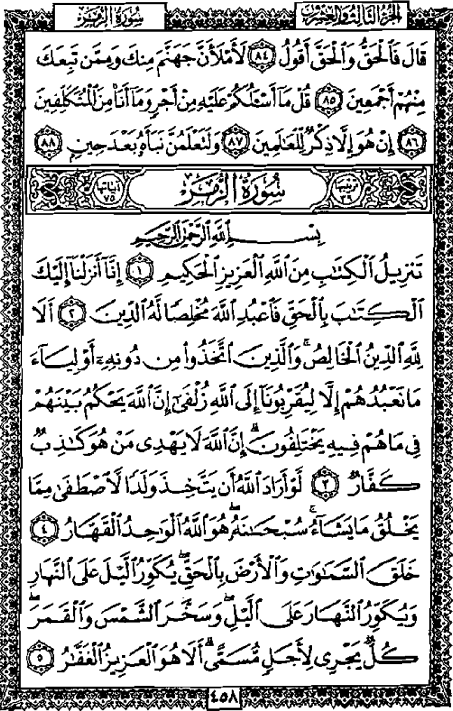 سُورَةُ الزُّمَرِ
الجُزْءُ الثَّالِثُ وَالعِشْرُونَ
قَالَ فَٱلْحَقُّ وَٱلْحَقَّ أَقُولُ ٨٤ لَأَمْلَأَنَّ جَهَنَّمَ مِنكَ وَمِمَّن تَبِعَكَ
مِنْهُمْ أَجْمَعِينَ ٨٥ قُلْ مَآ أَسْـَٔلُكُمْ عَلَيْهِ مِنْ أَجْرٍ وَمَآ أَنَا۠ مِنَ ٱلْمُتَكَلِّفِينَ
٨٦ إِنْ هُوَ إِلَّا ذِكْرٌ لِّلْعَٰلَمِينَ ٨٧ وَلَتَعْلَمُنَّ نَبَأَهُۥ بَعْدَ حِينٍۭ ٨٨
ترتيبها ٣٩ سُورَةُ الزُّمَرِ آياتها ٧٥
بِسْمِ ٱللَّهِ ٱلرَّحْمَٰنِ ٱلرَّحِيمِ
تَنزِيلُ ٱلْكِتَٰبِ مِنَ ٱللَّهِ ٱلْعَزِيزِ ٱلْحَكِيمِ ١ إِنَّآ أَنزَلْنَآ إِلَيْكَ
ٱلْكِتَٰبَ بِٱلْحَقِّ فَٱعْبُدِ ٱللَّهَ مُخْلِصًا لَّهُ ٱلدِّينَ ٢ أَلَا
لِلَّهِ ٱلدِّينُ ٱلْخَالِصُ ۚ وَٱلَّذِينَ ٱتَّخَذُوا۟ مِن دُونِهِۦٓ أَوْلِيَآءَ
مَا نَعْبُدُهُمْ إِلَّا لِيُقَرِّبُونَآ إِلَى ٱللَّهِ زُلْفَىٰٓ إِنَّ ٱللَّهَ يَحْكُمُ بَيْنَهُمْ
فِى مَا هُمْ فِيهِ يَخْتَلِفُونَ ۗ إِنَّ ٱللَّهَ لَا يَهْدِى مَنْ هُوَ كَٰذِبٌ
كَفَّارٌ ٣ لَّوْ أَرَادَ ٱللَّهُ أَن يَتَّخِذَ وَلَدًا لَّٱصْطَفَىٰ مِمَّا
يَخْلُقُ مَا يَشَآءُ ۚ سُبْحَٰنَهُۥ ۖ هُوَ ٱللَّهُ ٱلْوَٰحِدُ ٱلْقَهَّارُ ٤
خَلَقَ ٱلسَّمَٰوَٰتِ وَٱلْأَرْضَ بِٱلْحَقِّ ۖ يُكَوِّرُ ٱلَّيْلَ عَلَى ٱلنَّهَارِ
وَيُكَوِّرُ ٱلنَّهَارَ عَلَى ٱلَّيْلِ ۖ وَسَخَّرَ ٱلشَّمْسَ وَٱلْقَمَرَ ۖ
كُلٌّ يَجْرِى لِأَجَلٍ مُّسَمًّى ۗ أَلَا هُوَ ٱلْعَزِيزُ ٱلْغَفَّٰرُ ٥
٤٥٨